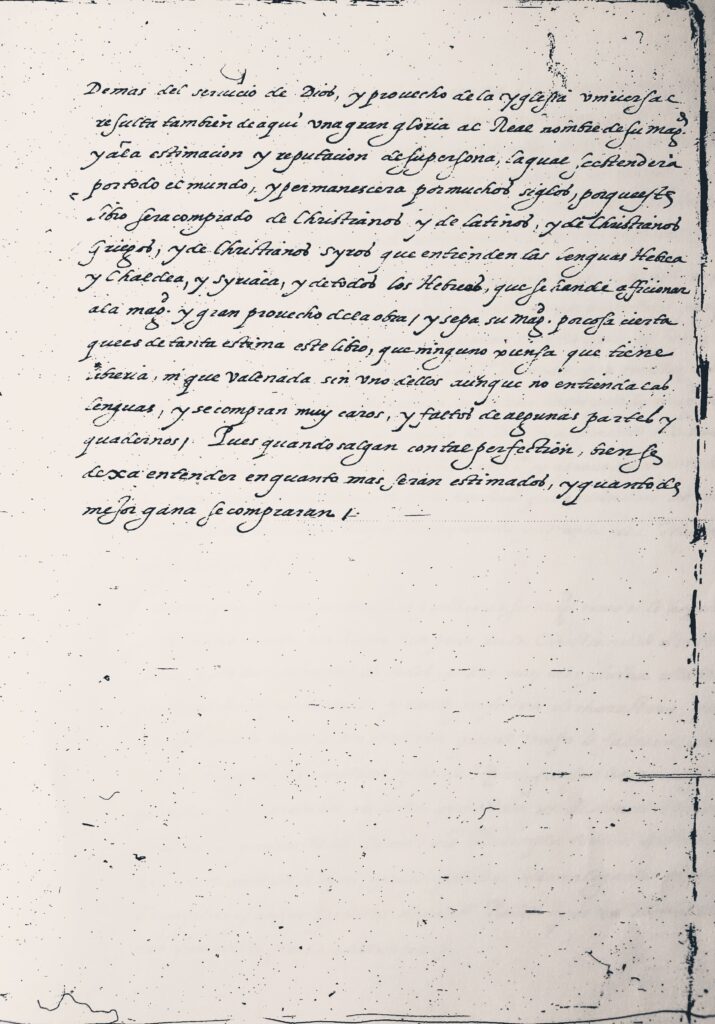 Demas del seruicio de Dios, y prouecho de la yglesia vniuersal
resulta tambien de aqui vna gran gloria al Real nombre de su magd.
y a la estimacion y reputacion de su persona, la qual se estendera
por todo el mundo, y permanescera por muchos siglos, porque este
libro sera comprado de Christianos y de latinos, y de Christianos
Griegos, y de Christianos Syros que entienden las lenguas Hebrea
y Chaldea, y Syriaca, y de todos los Hebreos, que se han de afficionar
a la magd. y gran prouecho de la obra / y sepa su magd. por cosa cierta
que es de tanta estima este libro, que ninguno piensa que tiene
libreria, ni que vale nada sin vno dellos aunque no entienda las
lenguas, y se compran muy caros, y faltos de algunas partes y
quadernos / Pues quando salgan con tal perfection, bien se
dexa entender en quanto mas seran estimados, y quanto de
mejor gana se compraran /